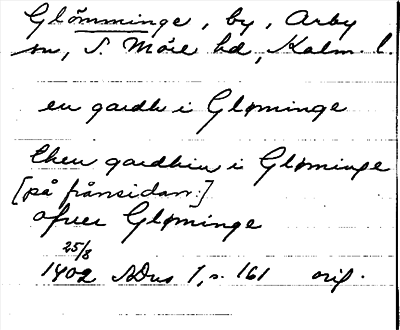 Glömminge, by, Arby
sn, S. Möre hd, Kalm. l.
en gardh i Gløminge
then gardhin i Gløminge
[på frånsidan:]
ofuer Gløminge
25/8
1402 SDns 1, s. 161 orig.